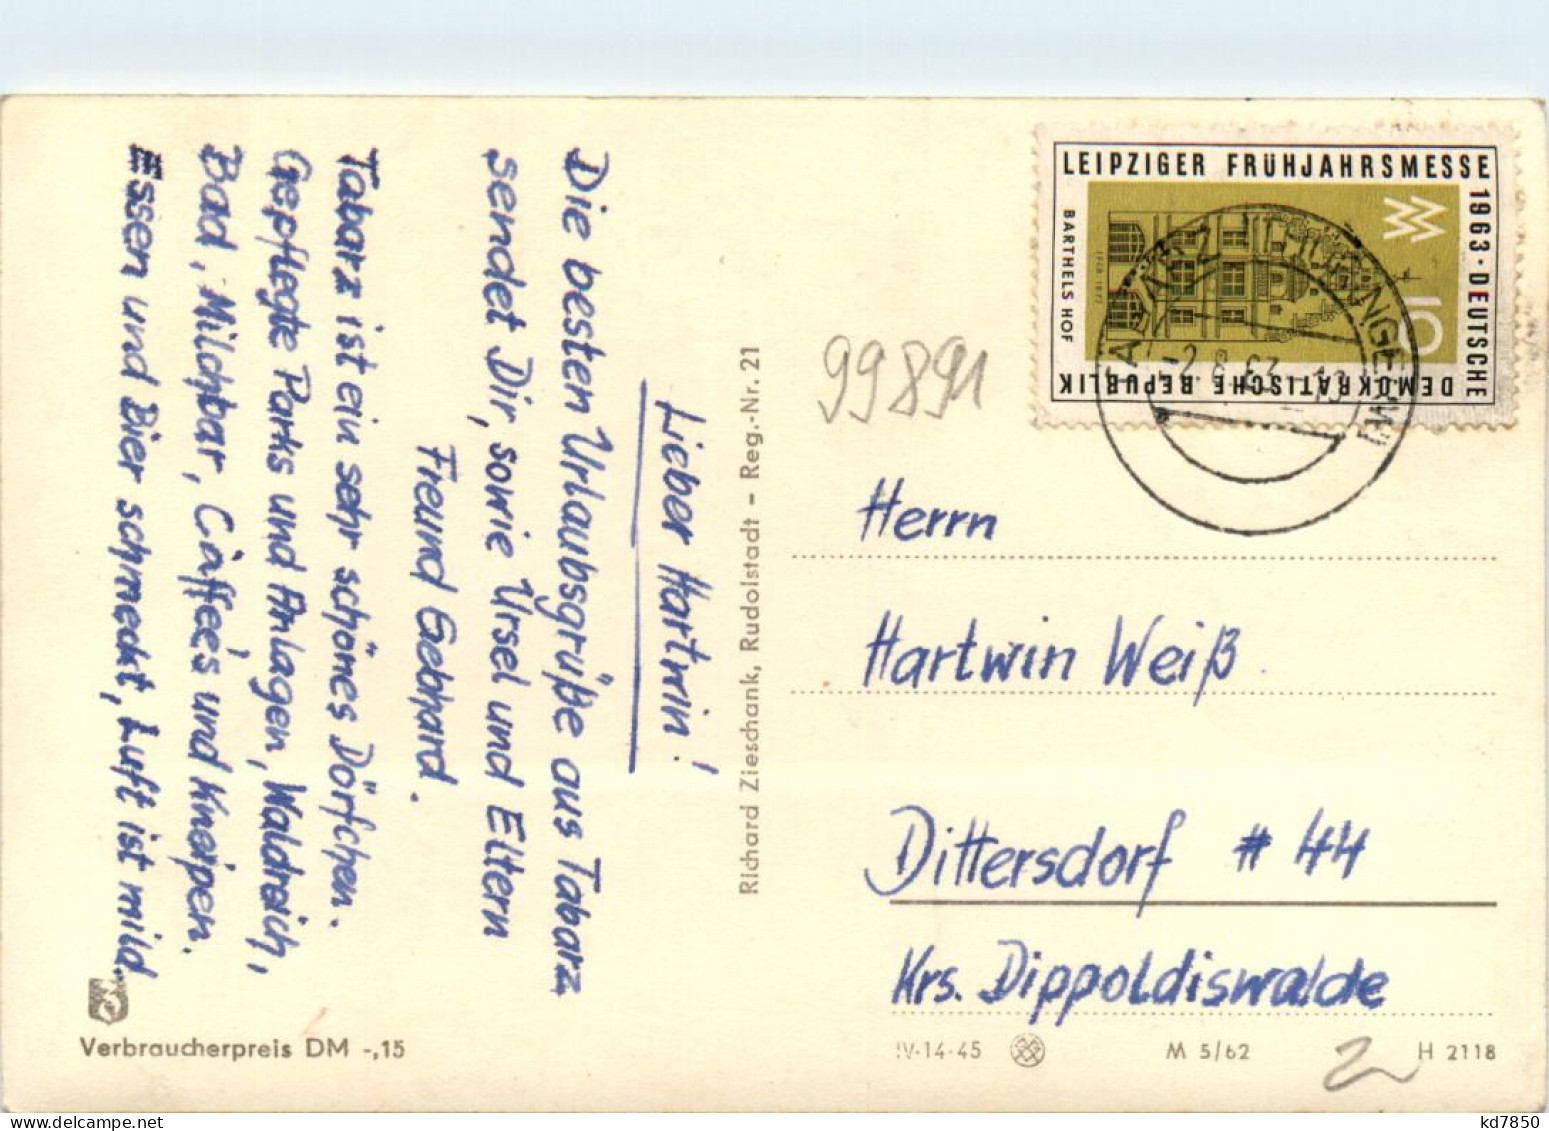 Lieber Hartwin!
Die besten Urlaubsgrüße aus Tabarz
sendet Dir, sowie Ursel und Eltern
Freund Gebhard.
Tabarz ist ein sehr schönes Dörfchen.
Gepflegte Parks und Anlagen, Waldreich,
Bad, Milchbar, Caffée's und Kneipen.
Essen und Bier schmeckt, Luft ist mild.
Verbraucherpreis DM -,15
Richard Zieschank, Rudolstadt – Reg.-Nr. 21
99891
LEIPZIGER FRÜHJAHRSMESSE
1963 · DEUTSCHE
DEMOKRATISCHE REPUBLIK
BARTHELS HOF
10
Herrn
Hartwin Weiß
Dittersdorf # 44
Krs. Dippoldiswalde
IV-14-45
M 5/62
H 2118
2
kd7850